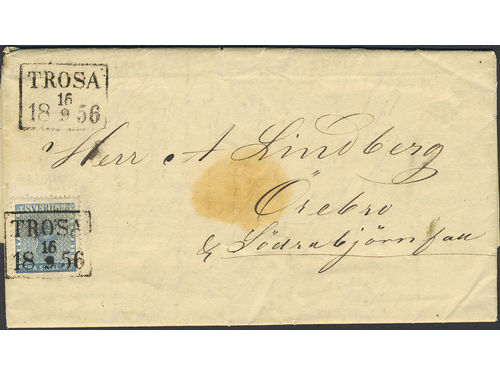 TROSA
16
18 9 56
Herr A Lindberg
Örebro
&
SVERIGE
TROSA
16
18 9 56